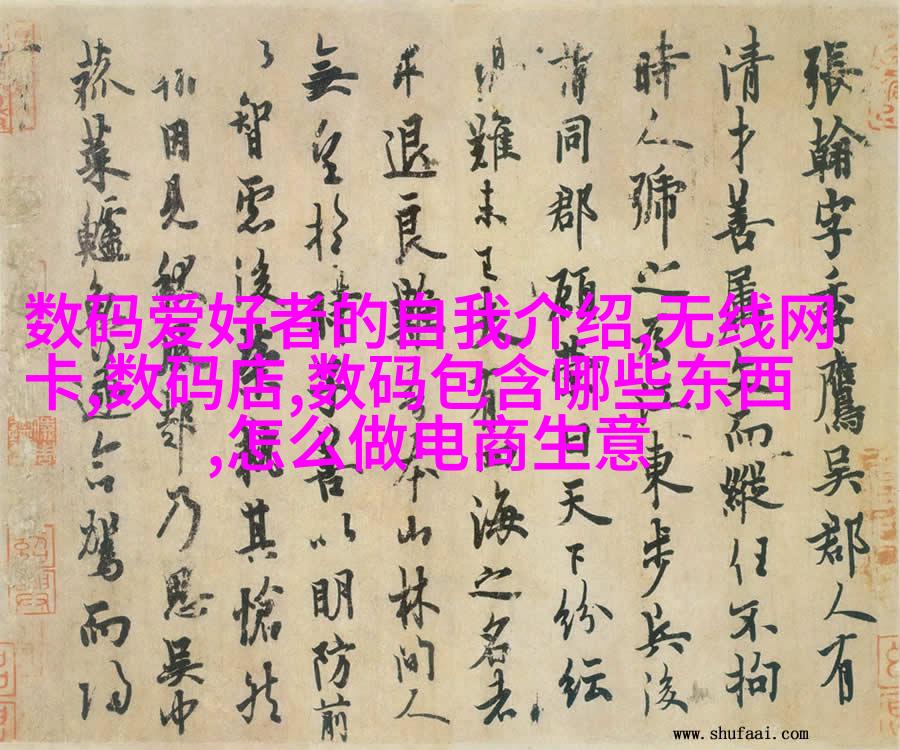 張翰字季鷹吳郡人有
清才善屬文而縱任不拘
時人號之為江東步兵後
謂同郡顧榮曰天下紛紜
禍難未已夫有四海之名者
求退良難吾本山林間人
無望於時子善以明防前
以智慮後榮執其愴然
翰因見秋風起乃思吳中
菰菜鱸魚遂命駕而歸
数码爱好者的自我介绍,无线网
卡,数码店,数码包含哪些东西
,怎么做电商生意
www.shufaai.com